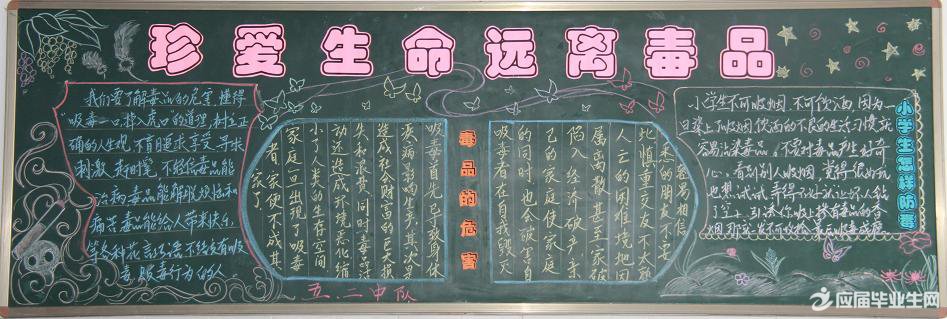 珍爱生命远离毒品
我们要了解毒品的危害,懂得
"吸毒一口,掉入虎口"的道理,树立正
确的人生观,不盲目追求享受,寻求
刺激,赶时髦,不轻信毒品能
治病,毒品能解脱烦恼和
痛苦,毒品能给人带来快乐
等各种花言巧语,不结交有吸
毒、贩毒行为的人。
毒品的危害
吸毒首先导致身体
疾病,影响生产,其次是
造成社会财富的巨大损
失和浪费,同时毒品活
动还造成环境恶化,缩
小了人类的生存空间
家庭一旦出现了吸毒
者,家便不成其
家了
此慎重交友,不太
人亡的困难境地,因
属离散,甚至家破
陷入经济破产,亲
己的家庭,使家庭
的同时,也会破害自
吸毒者在自我毁灭
小学生怎样防毒
小学生不可吸烟,不可饮酒,因为一
旦染上了吸烟饮酒的不良的生活习惯,就
容易沾染毒品,不要对毒品产生好奇
心,看别别人吸烟,觉得很好玩
也想试试
五.二中队
应届毕业生网